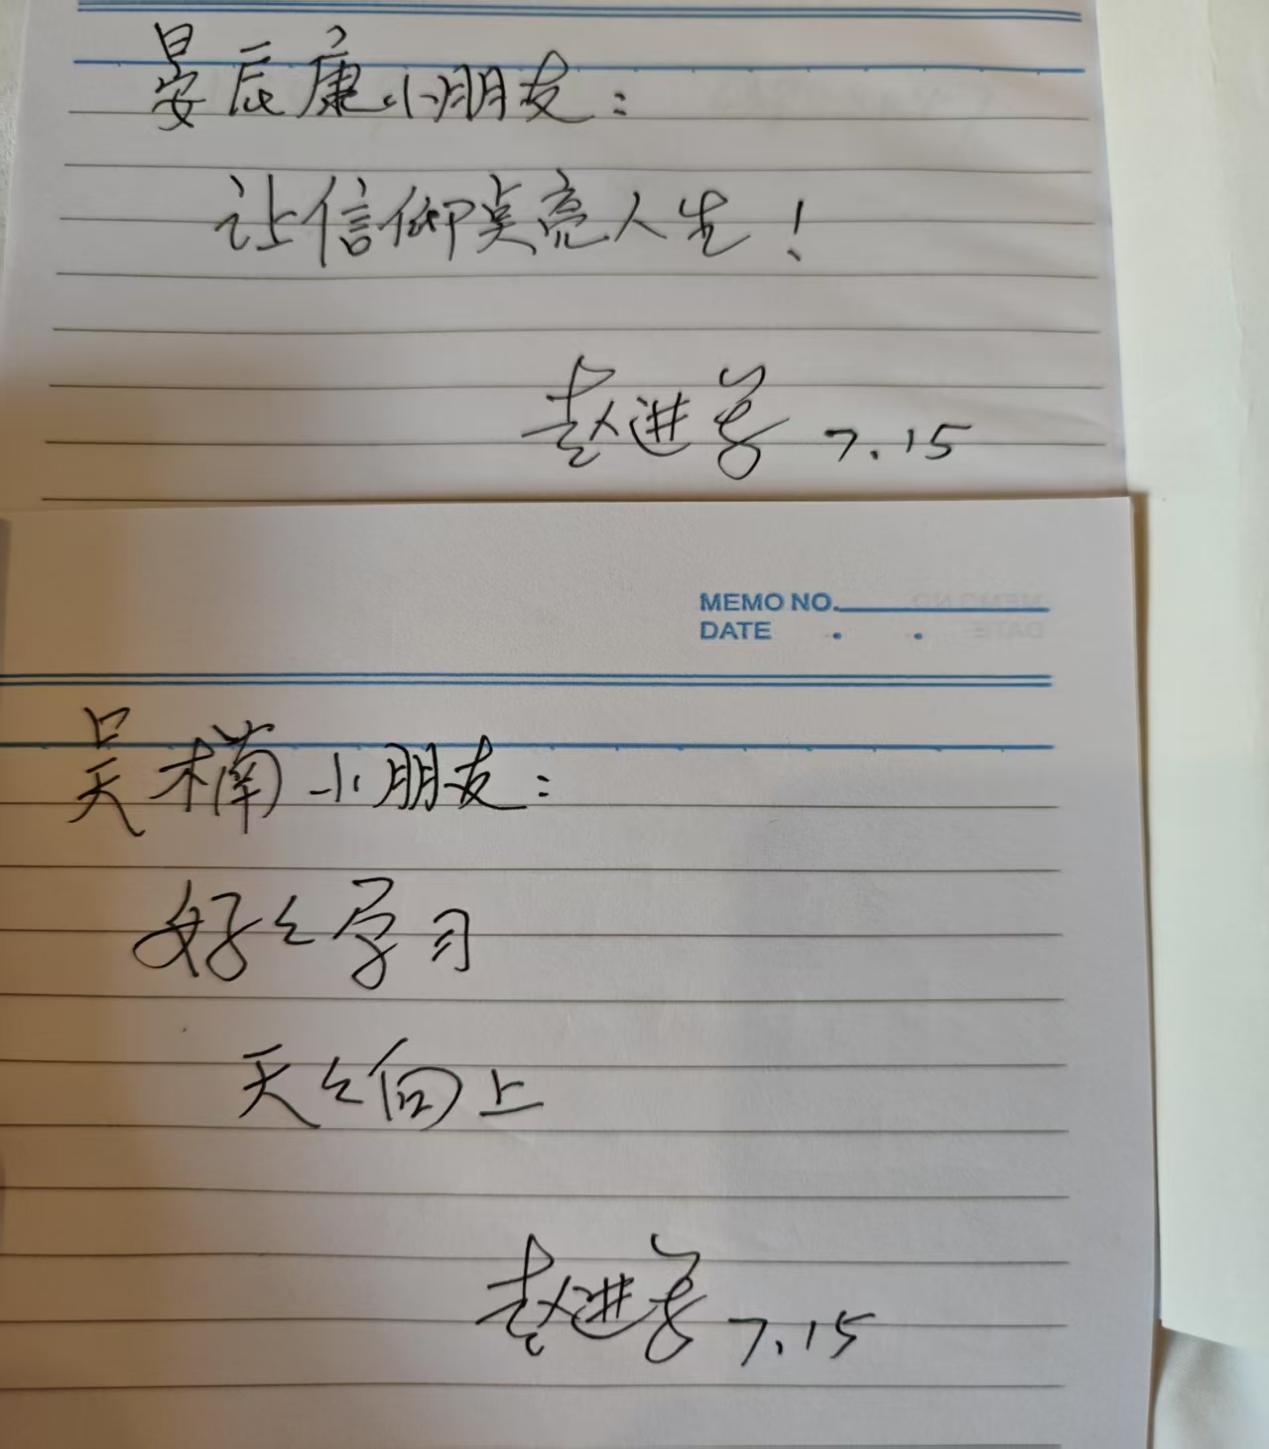 晏辰康小朋友：
让信仰点亮人生！
赵进喜 7.15
MEMO NO.
DATE . .
吴楠小朋友：
好々学习
天々向上
赵进喜 7.15